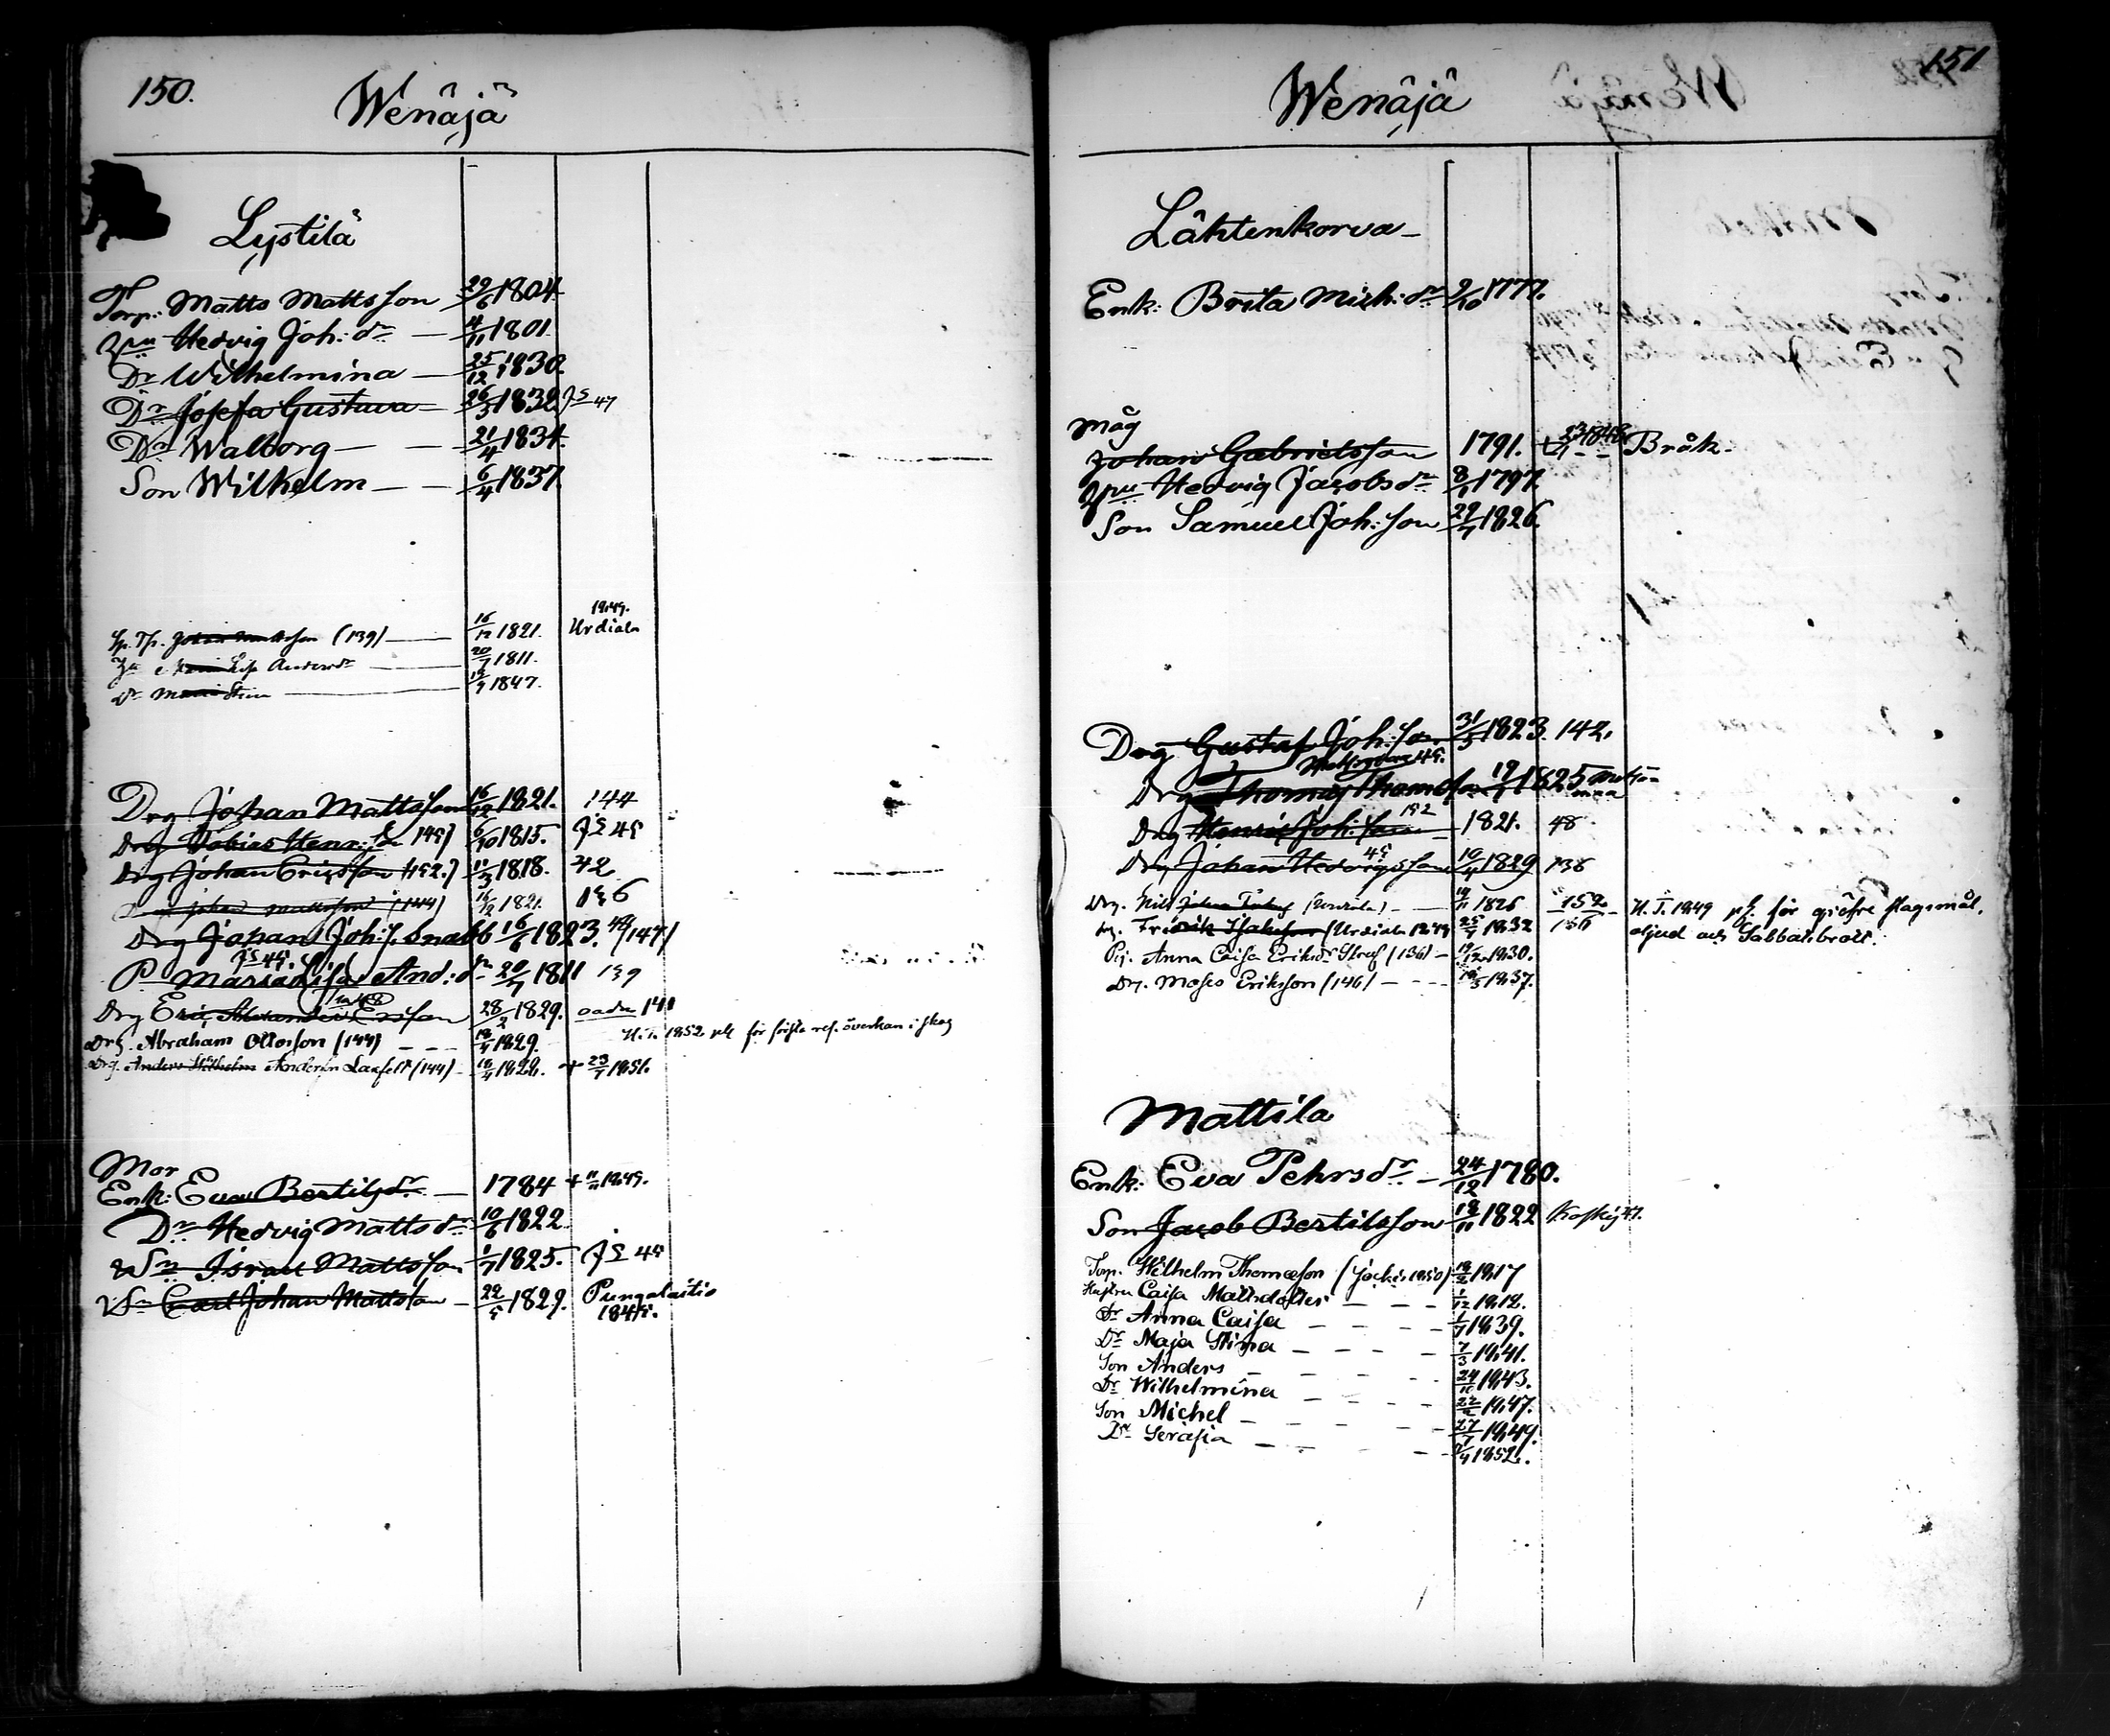 150.
Wenäjä
Lystilä
Torp: Matts Mattsson 29/6 1804.
Hu Hedvig Joh: dr 4/11 1801.
Dr Wilhelmina 25/12 1830.
Dr Josefa Gustava 26/3 1832. JS 47
Dr Walborg 21/4 1834.
Son Wilhelm 6/4 1837.
1849.
Johan (139) 16/12 1821. Urdiala
Lisa Andersdr 20/7 1811.
Dr 1847.
Drg Johan Mattsson 16/12 1821. 144
Drg Tobias Henr: s. 145) 6/10 1815. JS 45
Drg Johan Ericsson (152.) 11/3 1818. 42
Johan Mattsson (144) 16/12 1821. 136
Drg Johan Joh: s. Snabb 16/6 1823. 48/147)
JS 45.
P. Maria Lisa And: dr 20/7 1811 139
Drg Eric Alexander Ersson 28/2 1829. 141
Drg. Abraham Ottosson (144) 18/4 1829. H. T. 1852 för första res. i skog
Drg. Anders Wilhelm Andersn (144) 18/4 1822. + 23/7 1851.
Mor
Enk: Eva Bertilsdr 1784 + 11/11 1849.
Dr Hedvig Mattsdr 10/6 1822
Sn Israel Mattsson 1/7 1825. JS 45
Sn Carl Johan Mattsson 22/5 1829. Pungalaitio
1845.
151
Wenäjä
Lähtenkorva
Enk: Brita Mich: dr 9/10 1777.
Måg
Johan Gabrielsson 1791. 1848 Bråk.
Hu Hedvig Jacobsdr 8/1 1797.
Son Samuel Joh: son 29/7 1826.
Drg Gustaf Joh: son 31/5 1823. 142.
45.
Drg Thomas Thomson 19/1 1825
152
Drg Henric Joh: son 1821. 48
45
Drg Johan Hedvigsson 10/4 1829 138
Drg. Nils 1826 152 H. T. 1849 för gröfre slagsmål,
Drg. Fredrik Isaksson (Urdiala 1849 25/7 1832 156 oljud och Sabbatsbrott.
Pig. Anna Caisa Eriksdr (136) 19/12 1830.
Drg. Moses Eriksson (146) 18/5 1837.
Mattila
Enk: Eva Pehrsdr 24/12 1780.
Son Jacob Bertilsson 18/11 1822 Koskis 47.
Torp. Wilhelm Thomasson (Jockis 1850) 18/2 1817
Hustru Caisa Mattsdotter 1/12 1812.
Dr Anna Caisa 1/7 1839.
Dr Maja Stina 7/3 1841.
Son Anders 24/10 1843.
Dr Wilhelmina 1847.
Son Michel 27/7 1849.
Dr Serafia 1852.